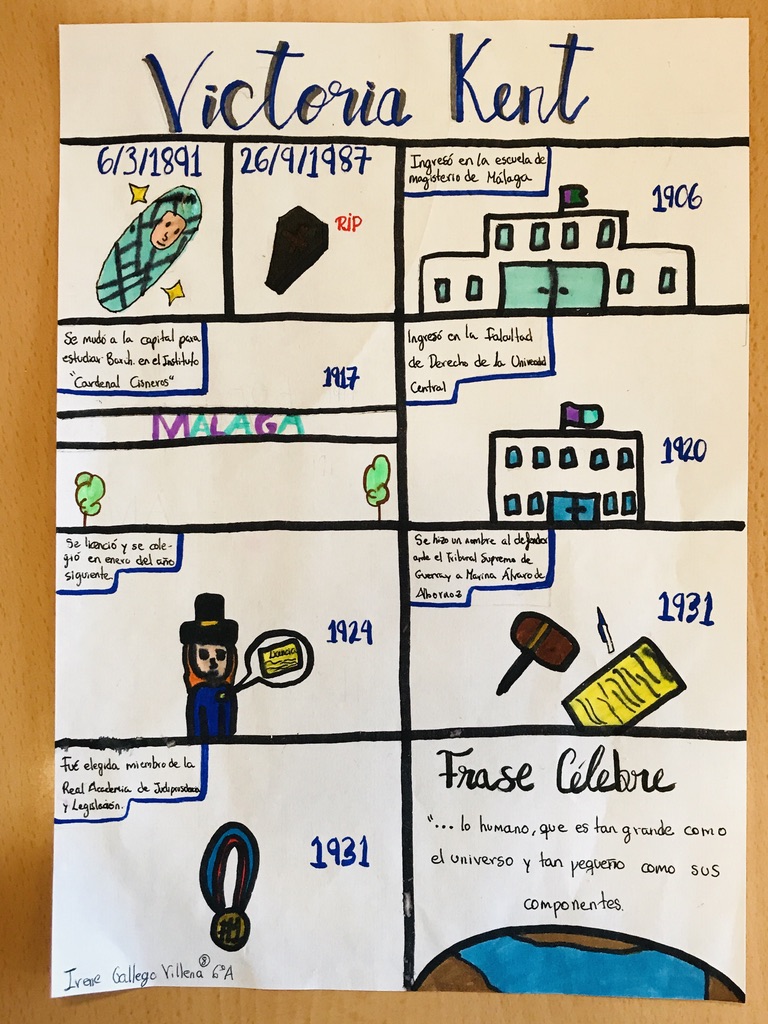 Victoria Kent
6/3/1891
26/9/1987
RIP
Ingresó en la escuela de
magisterio de Málaga
1906
Se mudó a la capital para
estudiar Bach. en el Instituto
"Cardenal Cisneros"
1917
MALAGA
Ingresó en la Falcultad
de Derecho de la Universidad
Central
1920
Se licenció y se cole-
gió en enero del año
siguiente.
1924
Se hizo un nombre al defender
ante el Tribunal Supremo de
Guerra y a Marina Álvaro de
Albornoz
1931
Fué elegida miembro de la
Real Academia de
y Legislación.
1931
Frase Célebre
"... lo humano, que es tan grande como
el universo y tan pequeño como sus
componentes.
Irene Gallego Villena 8 6ºA